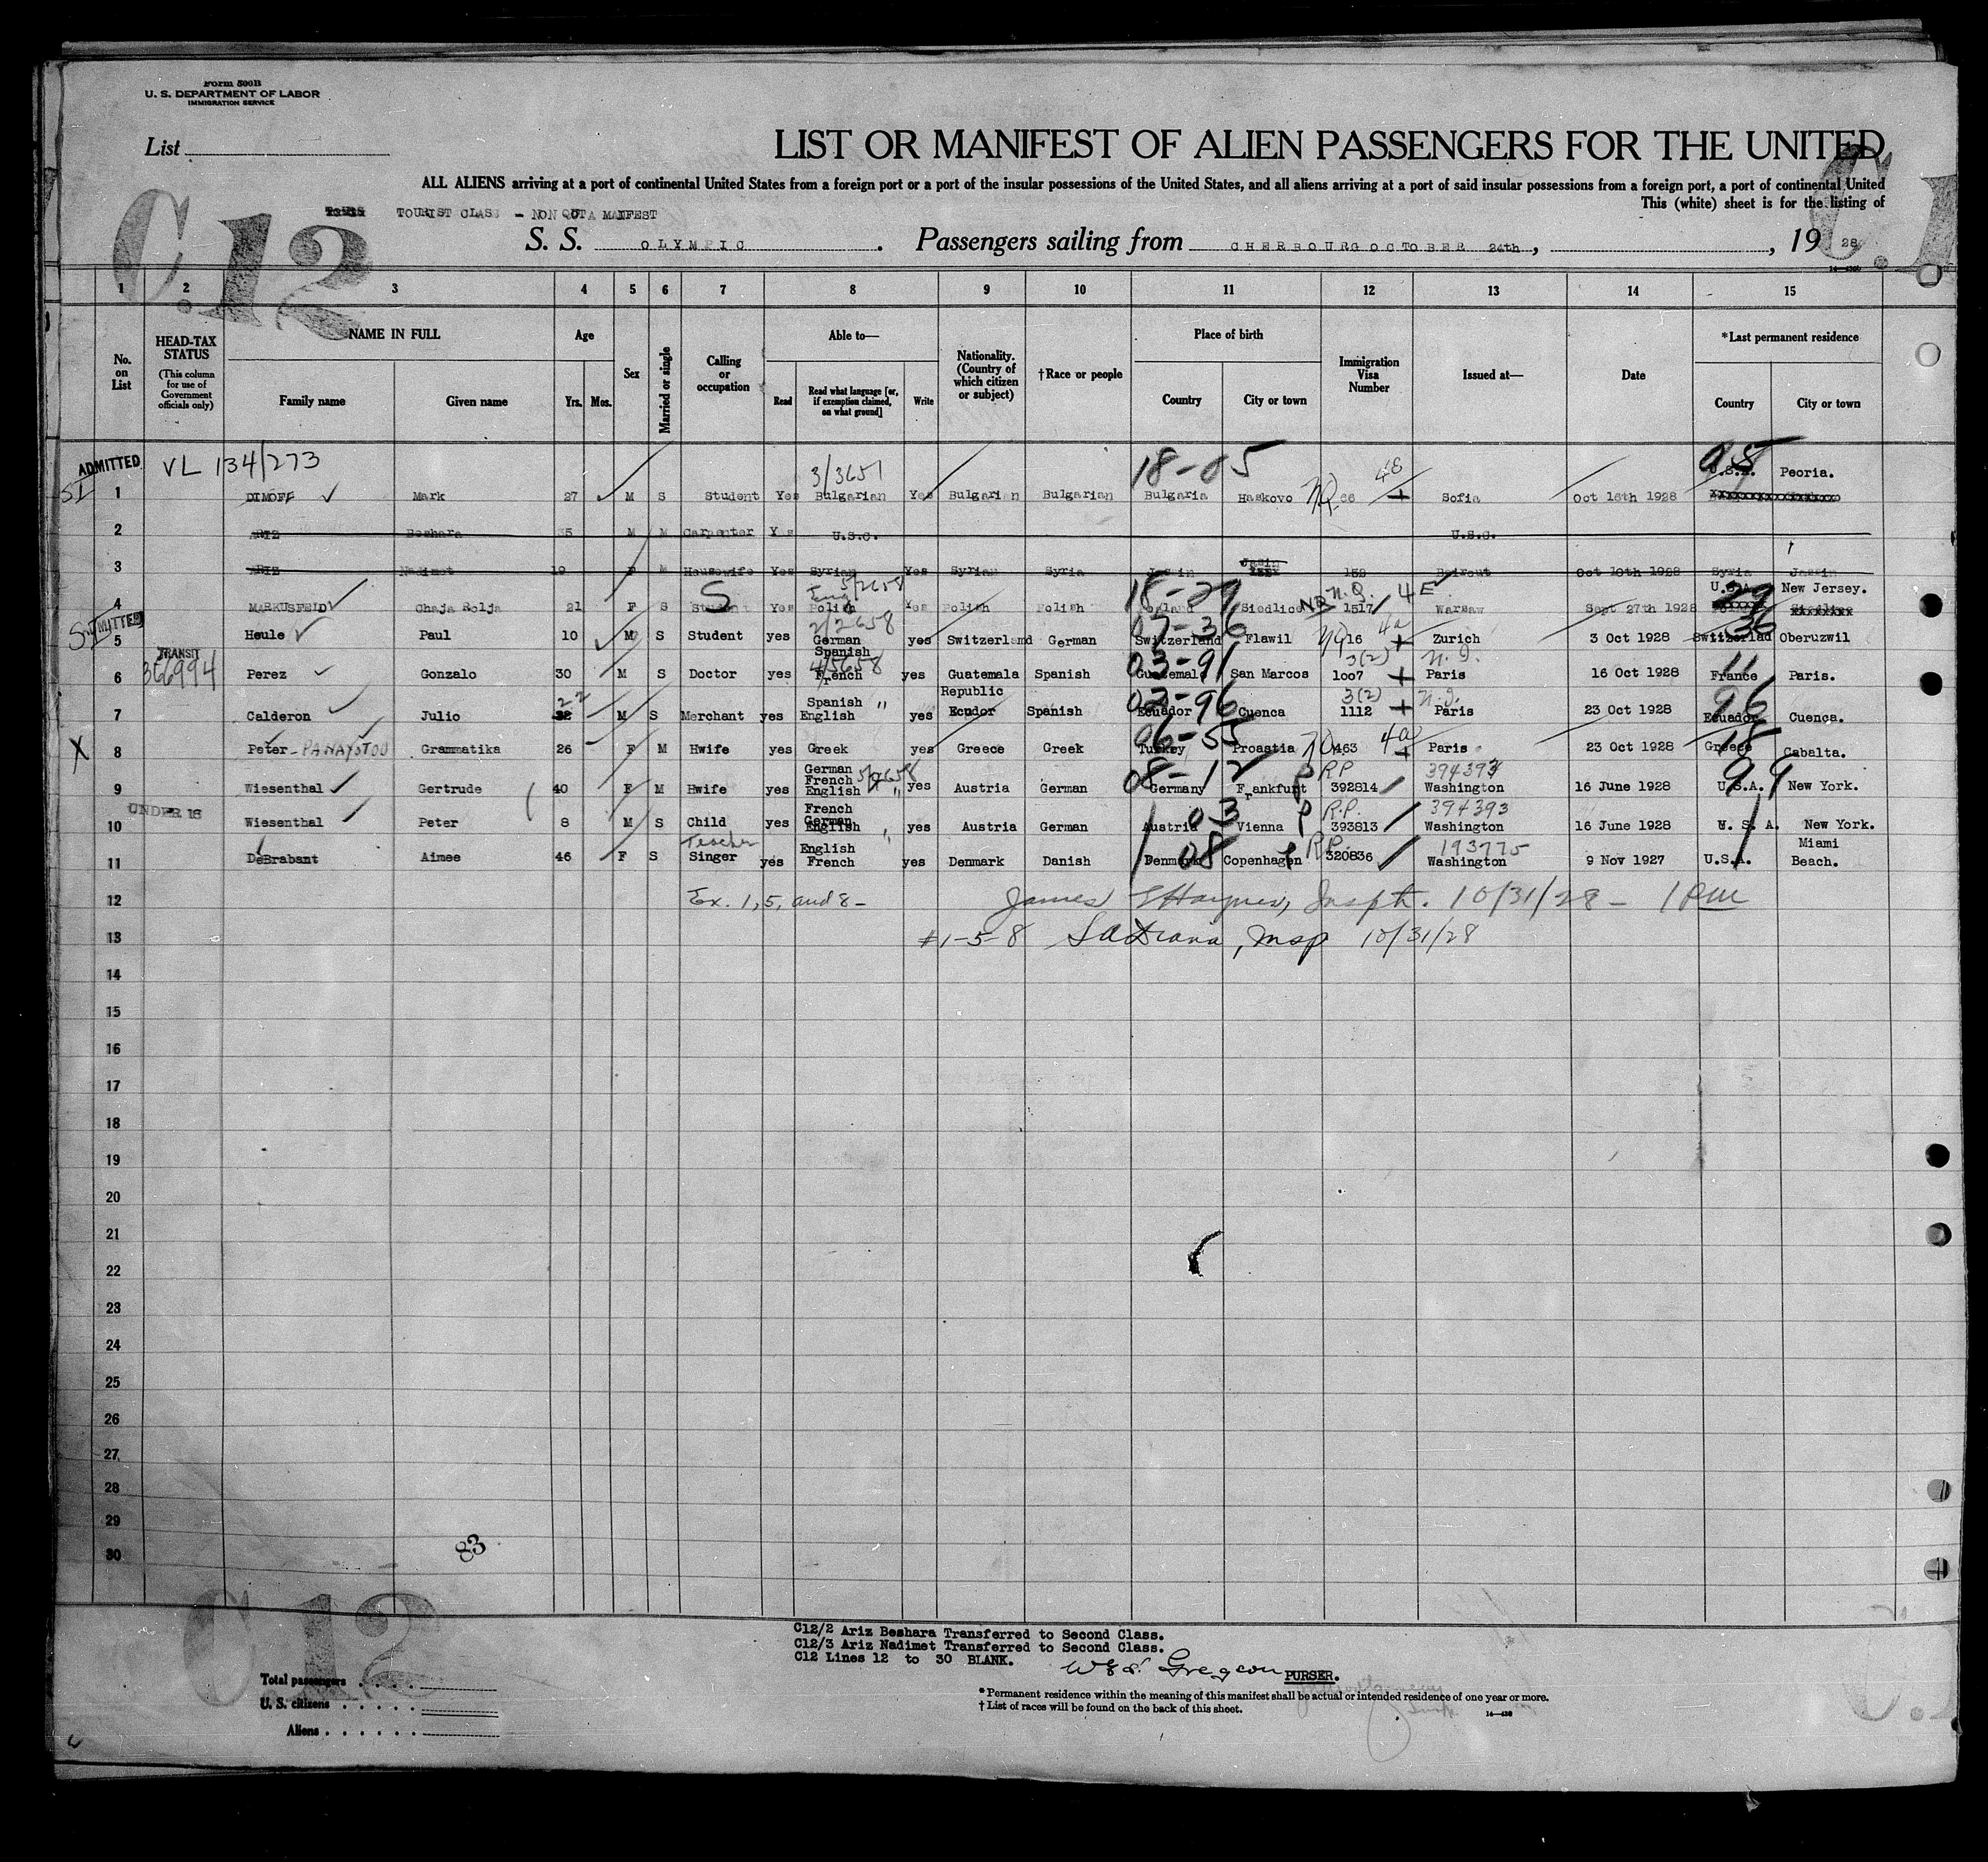 Form 500B
U. S. DEPARTMENT OF LABOR
IMMIGRATION SERVICE
List
LIST OR MANIFEST OF ALIEN PASSENGERS FOR THE UNITED
ALL ALIENS arriving at a port of continental United States from a foreign port or a port of the insular possessions of the United States, and all aliens arriving at a port of said insular possessions from a foreign port, a port of continental United
This (white) sheet is for the listing of
C.12
TOURIST CLASS - NON QUOTA MANIFEST
S. S. OLYMPIC. Passengers sailing from CHERBOURG OCTOBER 24th, , 19 28
1 2 3 4 5 6 7 8 9 10 11 12 13 14 15
No. on List
HEAD-TAX STATUS
(This column for use of Government officials only)
NAME IN FULL
Family name Given name
Age
Yrs. Mos.
Sex
Married or single
Calling or occupation
Able to—
Read
Read what language [or, if exemption claimed, on what ground]
Write
Nationality. (Country of which citizen or subject)
†Race or people
Place of birth
Country City or town
Immigration Visa Number
Issued at—
Date
*Last permanent residence
Country City or town
ADMITTED VL 134/273 3/3651 18-05 48 U.S.A. Peoria.
SI 1 DIMOFF Mark 27 M S Student Yes Bulgarian Yes Bulgarian Bulgarian Bulgaria Haskovo NQ 66 Sofia Oct 16th 1928
2 ARIZ Beshara 35 M M Carpenter Yes U.S.C. U.S.C.
3 ARIZ Nadimet 19 F M Housewife Yes Syrian Yes Syrian Syria Jasin 152 Beirout Oct 10th 1928 Syria
Eng 5/2658 18-29 N.Q. 4E U.S.A. New Jersey.
4 MARKUSFELD Chaja Rolja 21 F S Student Yes Polish Yes Polish Polish Poland Siedlice 1517 Warsaw Sept 27th 1928
ADMITTED 2/2658 07-36 4a 36
SI 5 Heule Paul 10 M S Student yes German yes Switzerland German Switzerland Flawil NQ 16 Zurich 3 Oct 1928 Switzerlad Oberuzwil
TRANSIT Spanish 4/5658 03-91 3(2) N.I.
366994 6 Perez Gonzalo 30 M S Doctor yes French yes Guatemala Spanish Guatemala San Marcos 1007 Paris 16 Oct 1928 France Paris.
22 Spanish " Republic 03-96 3(2) N.I. 96
7 Calderon Julio 32 M S Merchant yes English yes Ecudor Spanish Ecuador Cuenca 1112 Paris 23 Oct 1928 Ecuador Cuenca.
X 8 Peter-PANAYOTOU Grammatika 26 F M Hwife yes Greek yes Greece Greek 96-55 Turkey Proastia NQ 463 4a Paris 23 Oct 1928 Greece Cabalta.
German French 08-12 RP 394393
9 Wiesenthal Gertrude 40 F M Hwife yes English " yes Austria German Germany Frankfurt P 392814 Washington 16 June 1928 U.S.A. New York.
UNDER 16 French German 03 R.P. 394393
10 Wiesenthal Peter 8 M S Child yes English yes Austria German Austria Vienna P 393813 Washington 16 June 1928 U. S. A. New York.
Teacher English 08 R.P. 193775 Miami
11 DeBrabant Aimee 46 F S Singer yes French yes Denmark Danish Denmark Copenhagen 320836 Washington 9 Nov 1927 U.S.A. Beach.
12 Ex. 1, 5, and 8 - James Haynes, Inspt. 10/31/28 - 1 PM
13 #1-5-8 Insp 10/31/28
14
15
16
17
18
19
20
21
22
23
24
25
26
27
28
29
30
83
C12
C12/2 Ariz Beshara Transferred to Second Class.
C12/3 Ariz Nadimet Transferred to Second Class.
C12 Lines 12 to 30 BLANK.
PURSER.
Total passengers
U. S. citizens
Aliens
* Permanent residence within the meaning of this manifest shall be actual or intended residence of one year or more.
† List of races will be found on the back of this sheet.